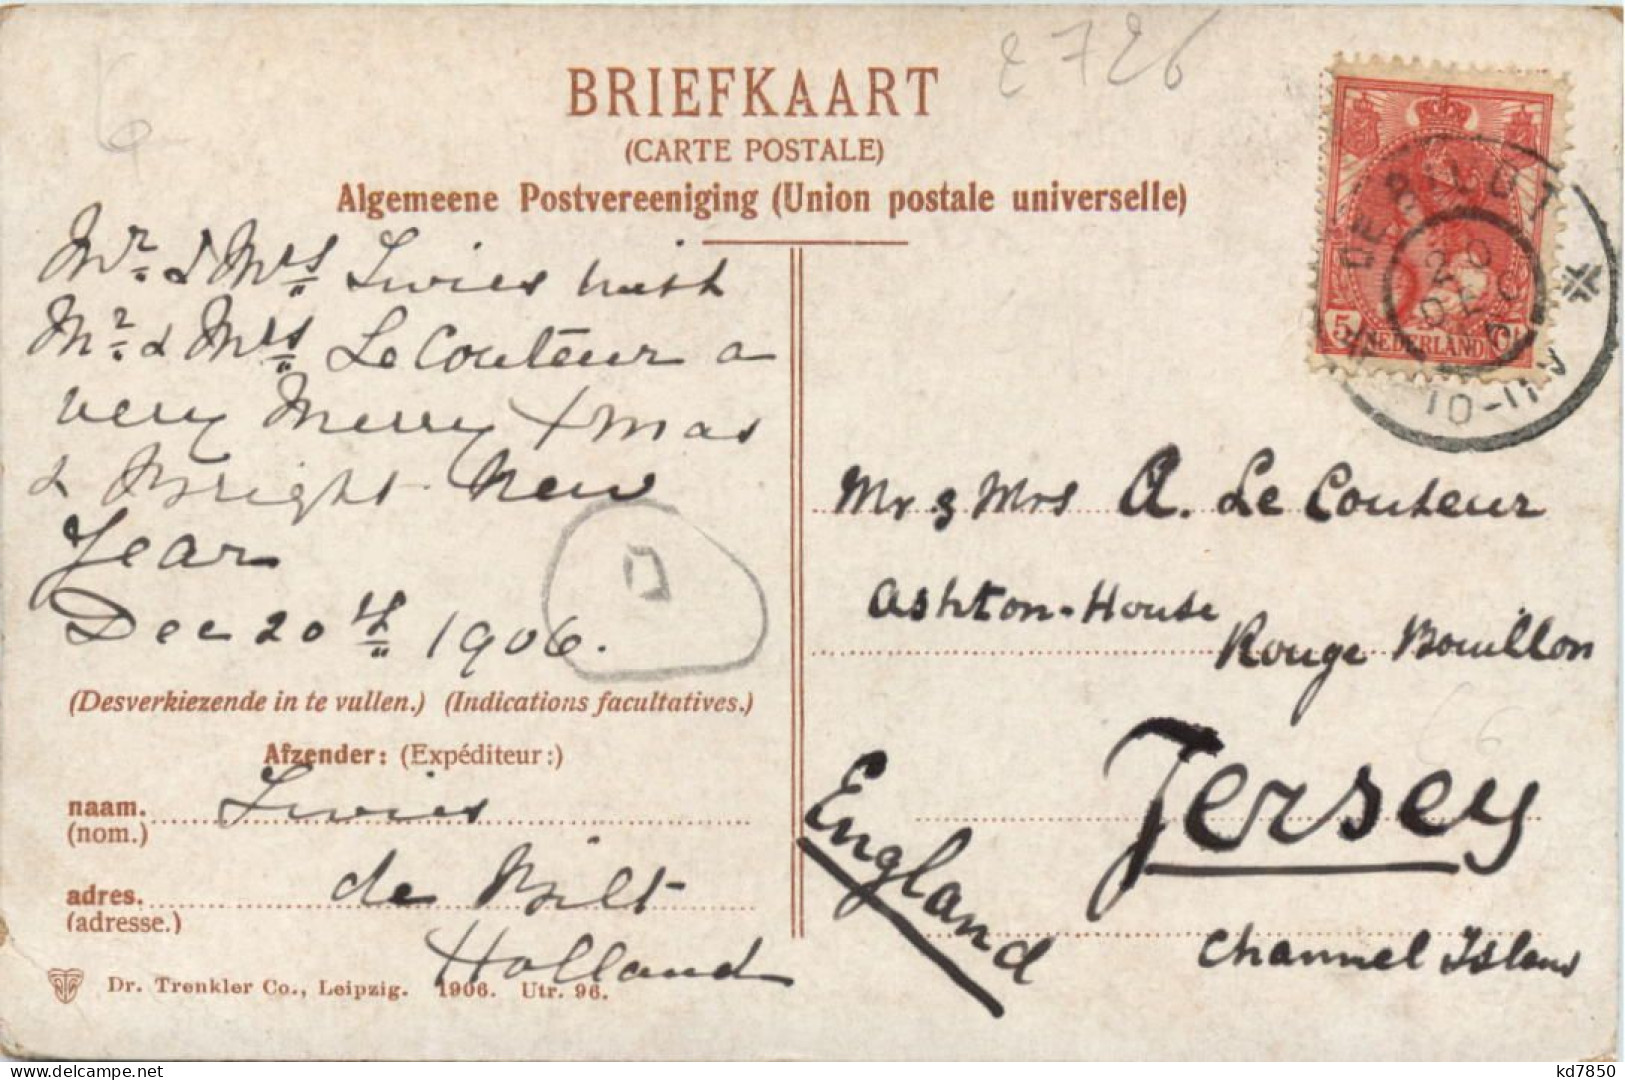 2726
BRIEFKAART
(CARTE POSTALE)
Algemeene Postvereeniging (Union postale universelle)
Mr. & Mrs Lwies wish
Mr. & Mrs Le Couteur a
very Merry Xmas
& Bright New
Year
Dec 20th 1906.
(Desverkiezende in te vullen.) (Indications facultatives.)
Afzender: (Expéditeur:)
naam. Lwies
(nom.)
adres. de Bilt
(adresse.)
Holland
Dr. Trenkler Co., Leipzig. 1906. Utr. 96.
DE BILDT
20
DEC
10-11V
5 NEDERLAND Ct
Mr & Mrs A. Le Couteur
Ashton-House
Rouge Bouillon
Jersey
England
Channel Islans
kd7850